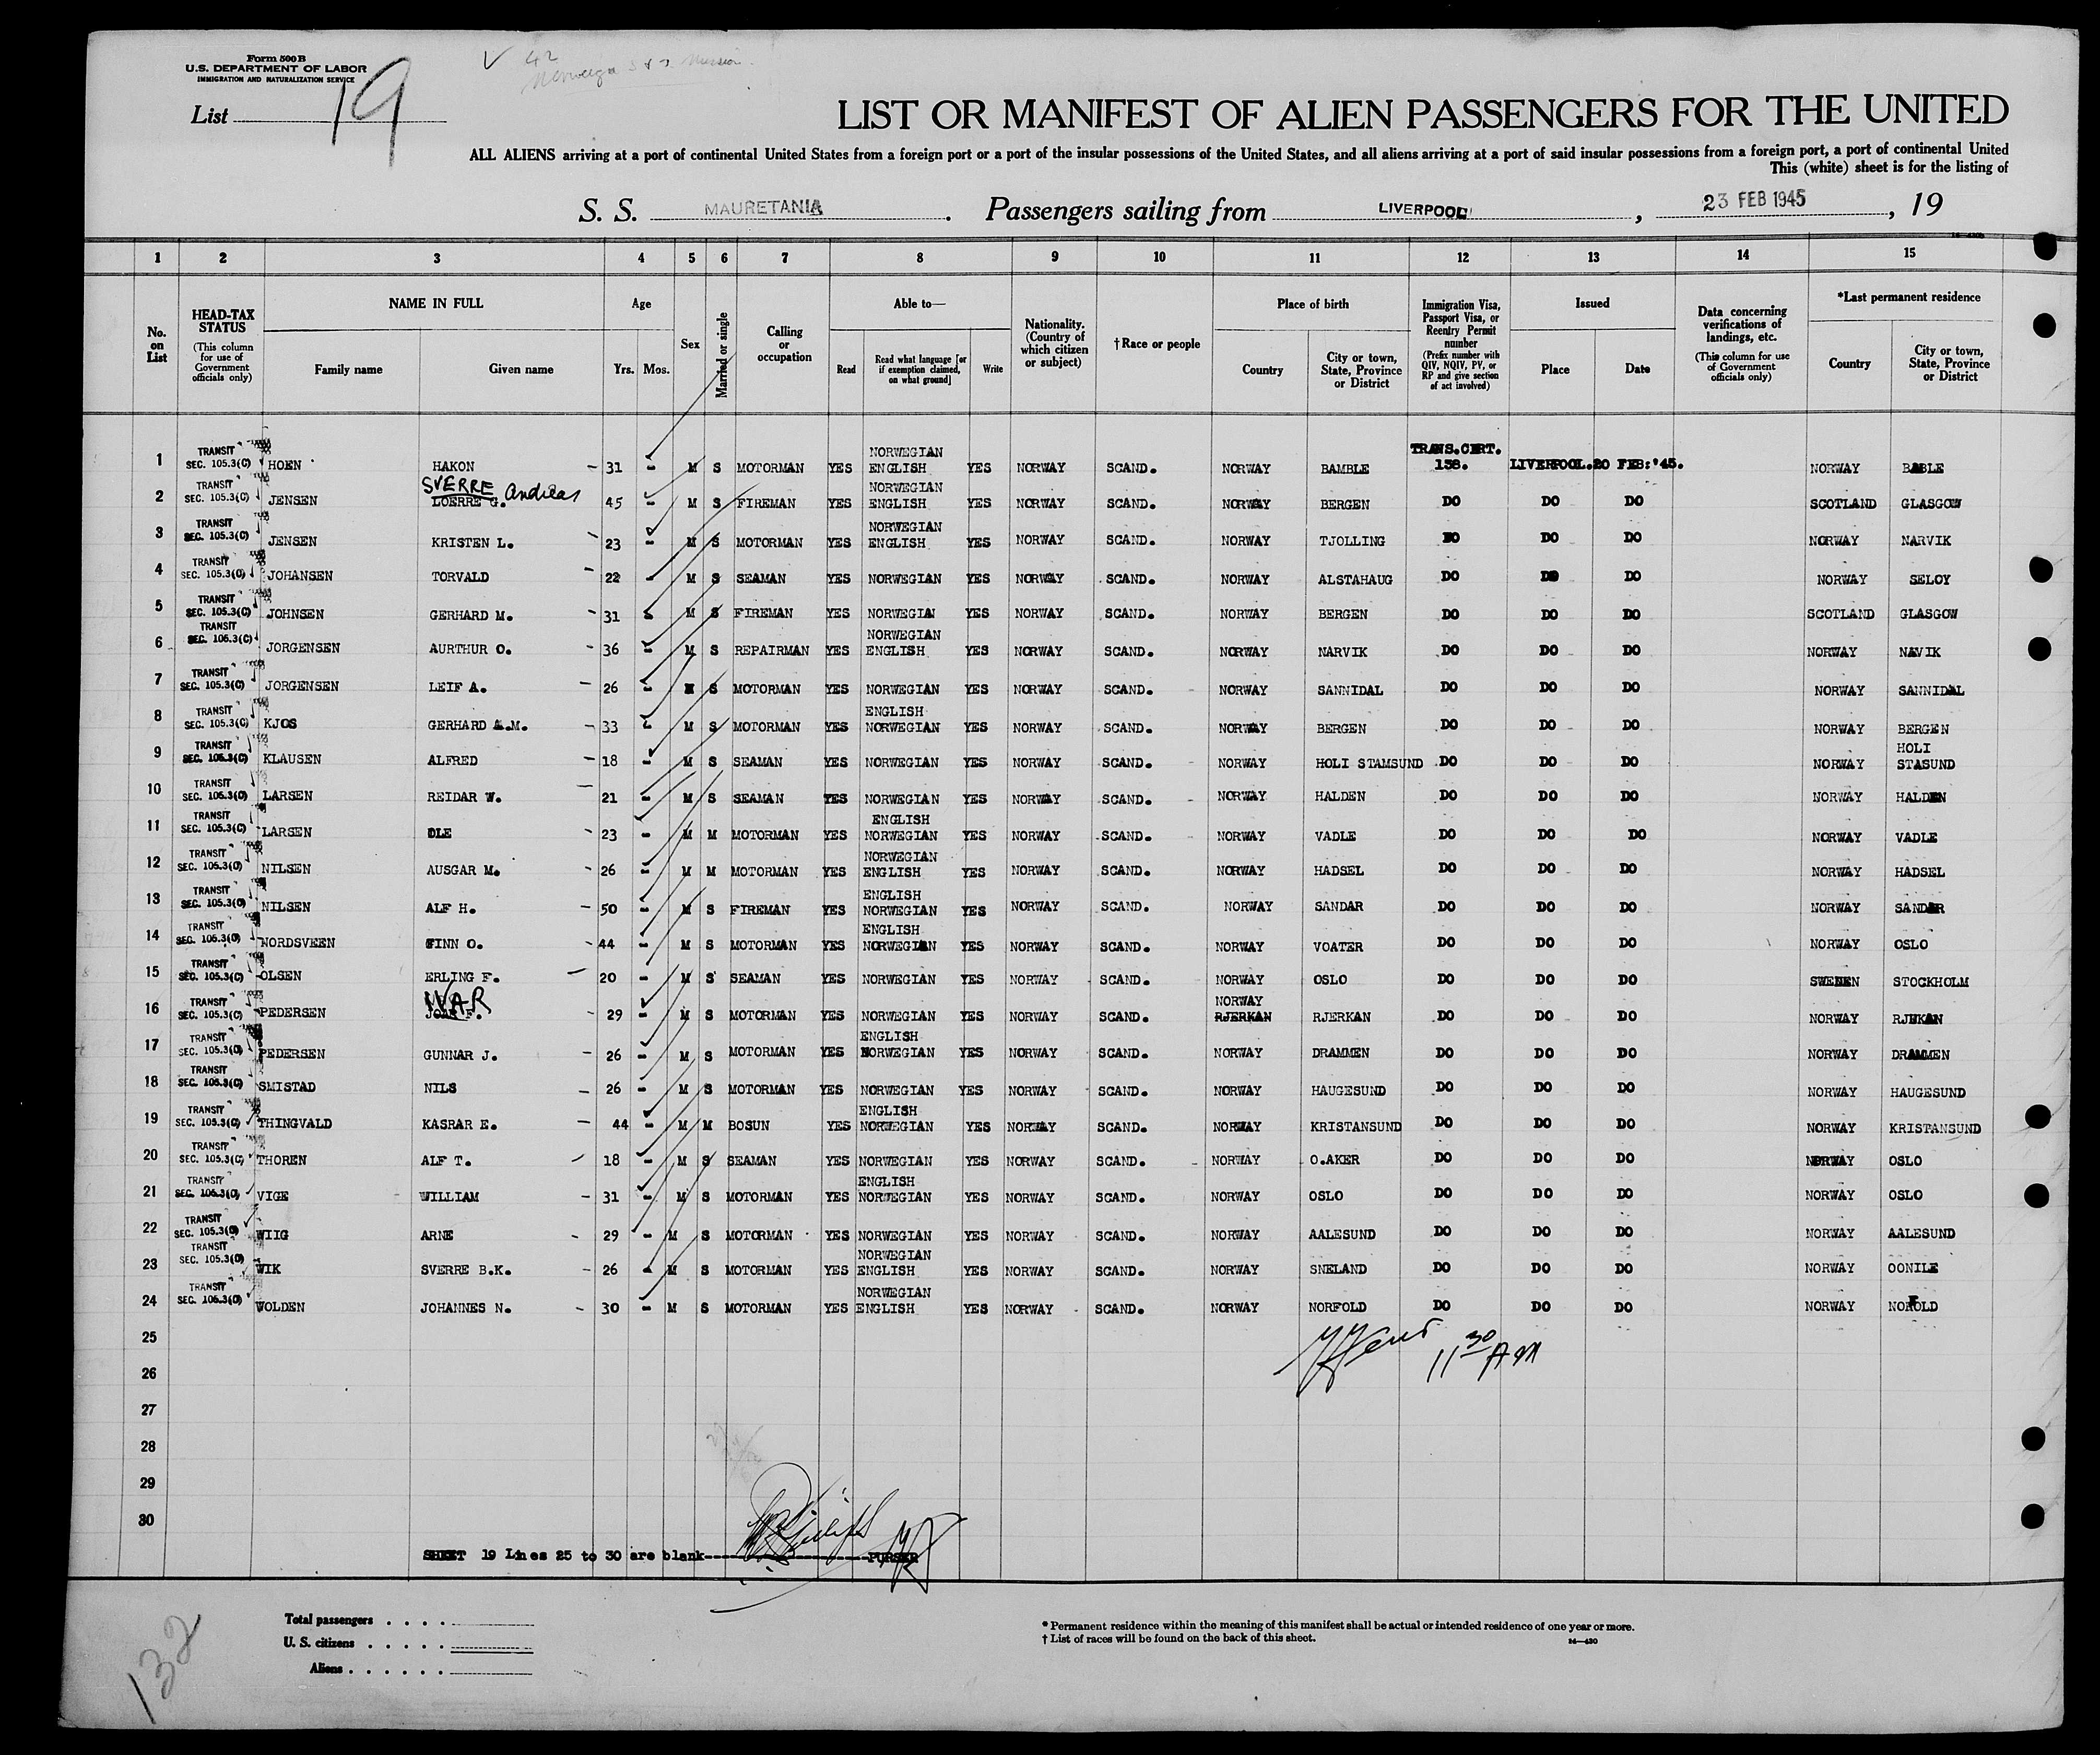 Form 500 B
U.S. DEPARTMENT OF LABOR
IMMIGRATION AND NATURALIZATION SERVICE
List 19
42
LIST OR MANIFEST OF ALIEN PASSENGERS FOR THE UNITED
ALL ALIENS arriving at a port of continental United States from a foreign port or a port of the insular possessions of the United States, and all aliens arriving at a port of said insular possessions from a foreign port, a port of continental United
This (white) sheet is for the listing of
S. S. MAURETANIA. Passengers sailing from LIVERPOOL, 23 FEB 1945, 19
1 2 3 4 5 6 7 8 9 10 11 12 13 14 15
No. on List
HEAD-TAX STATUS (This column for use of Government officials only)
NAME IN FULL Family name Given name
Age Yrs. Mos.
Sex
Married or single
Calling or occupation
Able to— Read Read what language [or if exemption claimed, on what ground] Write
Nationality. (Country of which citizen or subject)
†Race or people
Place of birth Country City or town, State, Province or District
Immigration Visa, Passport Visa, or Reentry Permit number (Prefix number with QIV, NQIV, PV, or RP and give section of act involved)
Issued Place Date
Data concerning verifications of landings, etc. (This column for use of Government officials only)
*Last permanent residence Country City or town, State, Province or District
1 TRANSIT SEC. 105.3(C) HOEN HAKON 31 - M S MOTORMAN YES NORWEGIAN ENGLISH YES NORWAY SCAND. NORWAY BAMBLE TRANS.CERT. 138. LIVERPOOL. 20 FEB:'45. NORWAY BABLE
2 TRANSIT SEC. 105.3(C) JENSEN SVERRE Andreas LOERRE G. 45 - M S FIREMAN YES NORWEGIAN ENGLISH YES NORWAY SCAND. NORWAY BERGEN DO DO DO SCOTLAND GLASGOW
3 TRANSIT SEC. 105.3(C) JENSEN KRISTEN L. 23 - M S MOTORMAN YES NORWEGIAN ENGLISH YES NORWAY SCAND. NORWAY TJOLLING DO DO DO NORWAY NARVIK
4 TRANSIT SEC. 105.3(C) JOHANSEN TORVALD 22 - M S SEAMAN YES NORWEGIAN YES NORWAY SCAND. NORWAY ALSTAHAUG DO DO DO NORWAY SELOY
5 TRANSIT SEC. 105.3(C) JOHNSEN GERHARD M. 31 - M S FIREMAN YES NORWEGIAN YES NORWAY SCAND. NORWAY BERGEN DO DO DO SCOTLAND GLASGOW
6 TRANSIT SEC. 105.3(C) JORGENSEN AURTHUR O. 36 - M S REPAIRMAN YES NORWEGIAN ENGLISH YES NORWAY SCAND. NORWAY NARVIK DO DO DO NORWAY NAVIK
7 TRANSIT SEC. 105.3(C) JORGENSEN LEIF A. 26 - M S MOTORMAN YES NORWEGIAN YES NORWAY SCAND. NORWAY SANNIDAL DO DO DO NORWAY SANNIDAL
8 TRANSIT SEC. 105.3(C) KJOS GERHARD A.M. 33 - M S MOTORMAN YES ENGLISH NORWEGIAN YES NORWAY SCAND. NORWAY BERGEN DO DO DO NORWAY BERGEN
9 TRANSIT SEC. 105.3(C) KLAUSEN ALFRED 18 - M S SEAMAN YES NORWEGIAN YES NORWAY SCAND. NORWAY HOLI STAMSUND DO DO DO NORWAY HOLI STASUND
10 TRANSIT SEC. 105.3(C) LARSEN REIDAR W. 21 - M S SEAMAN YES NORWEGIAN YES NORWAY SCAND. NORWAY HALDEN DO DO DO NORWAY HALDEN
11 TRANSIT SEC. 105.3(C) LARSEN OLE 23 - M M MOTORMAN YES ENGLISH NORWEGIAN YES NORWAY SCAND. NORWAY VADLE DO DO DO NORWAY VADLE
12 TRANSIT SEC. 105.3(C) NILSEN AUSGAR M. 26 - M M MOTORMAN YES NORWEGIAN ENGLISH YES NORWAY SCAND. NORWAY HADSEL DO DO DO NORWAY HADSEL
13 TRANSIT SEC. 105.3(C) NILSEN ALF H. 50 - M S FIREMAN YES ENGLISH NORWEGIAN YES NORWAY SCAND. NORWAY SANDAR DO DO DO NORWAY SANDAR
14 TRANSIT SEC. 105.3(C) NORDSVEEN FINN O. 44 - M S MOTORMAN YES ENGLISH NORWEGIAN YES NORWAY SCAND. NORWAY VOATER DO DO DO NORWAY OSLO
15 TRANSIT SEC. 105.3(C) OLSEN ERLING F. 20 - M S SEAMAN YES NORWEGIAN YES NORWAY SCAND. NORWAY OSLO DO DO DO SWEDEN STOCKHOLM
16 TRANSIT SEC. 105.3(C) PEDERSEN IVAR 29 - M S MOTORMAN YES NORWEGIAN YES NORWAY SCAND. NORWAY RJERKAN RJERKAN DO DO DO NORWAY RJEKAN
17 TRANSIT SEC. 105.3(C) PEDERSEN GUNNAR J. 26 - M S MOTORMAN YES ENGLISH NORWEGIAN YES NORWAY SCAND. NORWAY DRAMMEN DO DO DO NORWAY DRAMMEN
18 TRANSIT SEC. 105.3(C) SMISTAD NILS 26 - M S MOTORMAN YES NORWEGIAN YES NORWAY SCAND. NORWAY HAUGESUND DO DO DO NORWAY HAUGESUND
19 TRANSIT SEC. 105.3(C) THINGVALD KASRAR E. 44 - M M BOSUN YES ENGLISH NORWEGIAN YES NORWAY SCAND. NORWAY KRISTANSUND DO DO DO NORWAY KRISTANSUND
20 TRANSIT SEC. 105.3(C) THOREN ALF T. 18 - M S SEAMAN YES NORWEGIAN YES NORWAY SCAND. NORWAY O.AKER DO DO DO NORWAY OSLO
21 TRANSIT SEC. 105.3(C) VIGE WILLIAM 31 - M S MOTORMAN YES ENGLISH NORWEGIAN YES NORWAY SCAND. NORWAY OSLO DO DO DO NORWAY OSLO
22 TRANSIT SEC. 105.3(C) WIIG ARNE 29 - M S MOTORMAN YES NORWEGIAN YES NORWAY SCAND. NORWAY AALESUND DO DO DO NORWAY AALESUND
23 TRANSIT SEC. 105.3(C) WIK SVERRE B.K. 26 - M S MOTORMAN YES NORWEGIAN ENGLISH YES NORWAY SCAND. NORWAY SNELAND DO DO DO NORWAY OONILE
24 TRANSIT SEC. 105.3(C) WOLDEN JOHANNES N. 30 - M S MOTORMAN YES NORWEGIAN ENGLISH YES NORWAY SCAND. NORWAY NORFOLD DO DO DO NORWAY NORFOLD
25
26 11 30 AM
27
28
29
30
SHEET 19 Lines 25 to 30 are blank---PURSER
Total passengers . . . .
U. S. citizens . . . . .
Aliens . . . . . .
* Permanent residence within the meaning of this manifest shall be actual or intended residence of one year or more.
† List of races will be found on the back of this sheet.
14—430
132